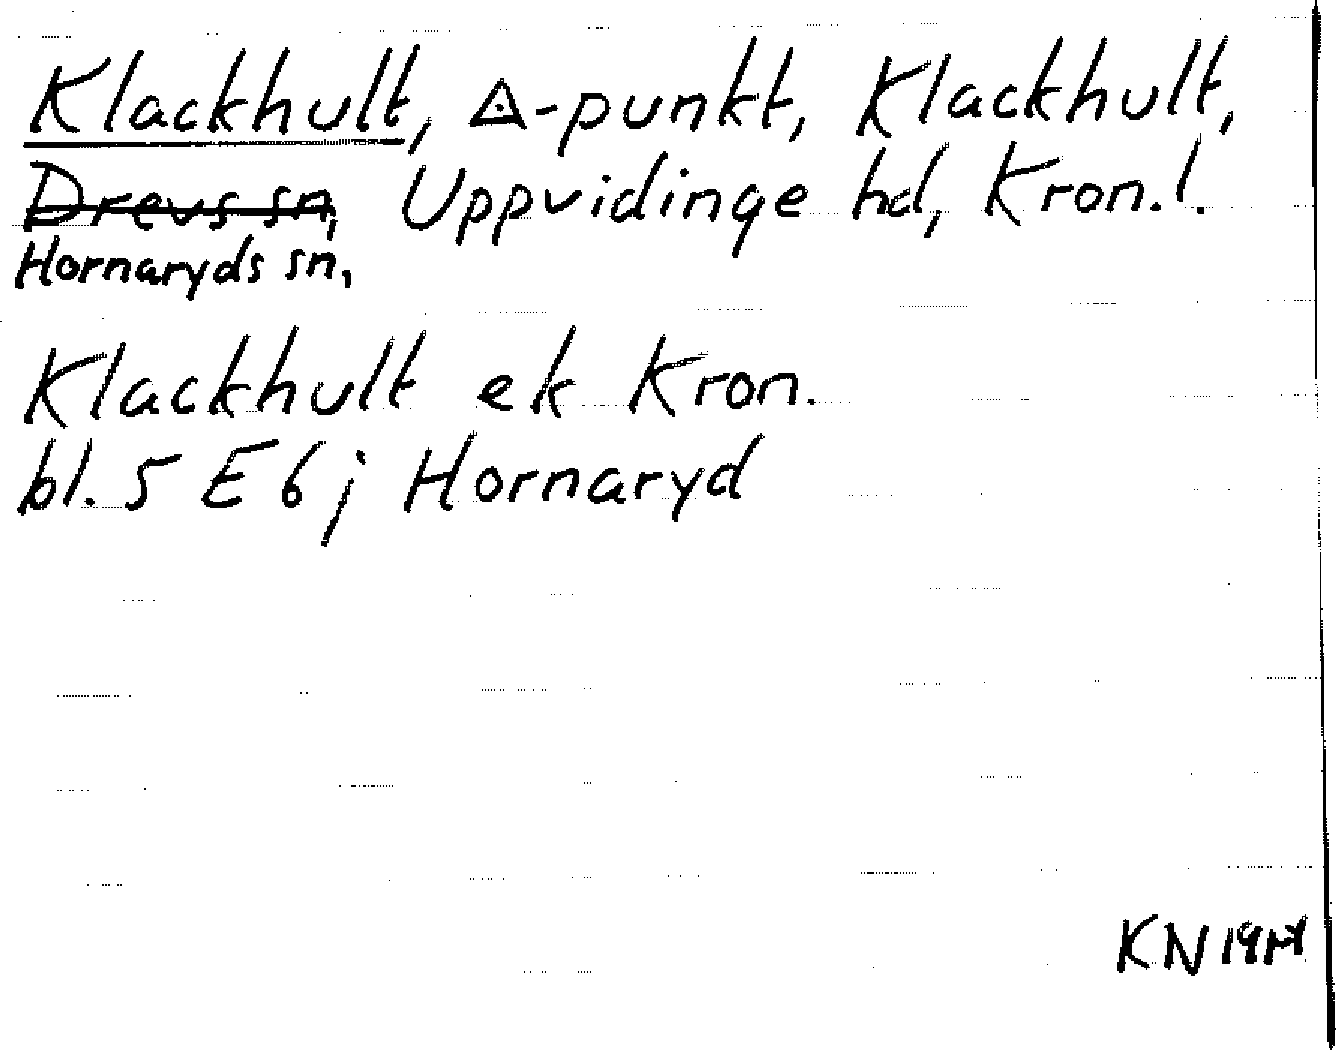 Klackhult, △-punkt, Klackhult,
Drevs sn, Uppvidinge hd, Kron.l.
Hornaryds sn,
Klackhult ek Kron.
bl. 5 E 6 j Hornaryd
KN